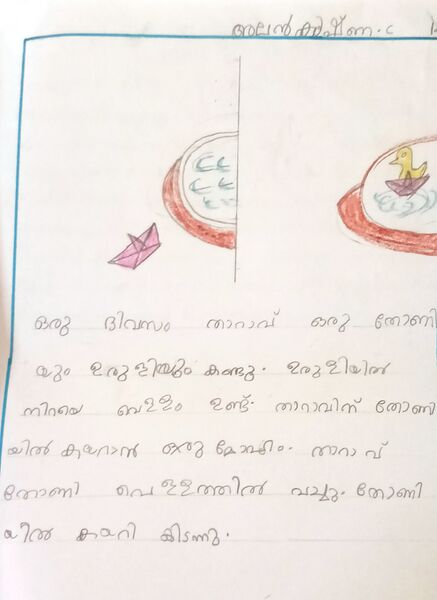 അലൻകൃഷ്ണ. c
ഒരു ദിവസം താറാവ് ഒരു തോണി
യും ഉരുളിയും കണ്ടു. ഉരുളിയിൽ
നിറയെ വെള്ളം ഉണ്ട്. താറാവിന് തോണി
യിൽ കയറാൻ ഒരു മോഹം. താറാവ്
തോണി വെള്ളത്തിൽ വച്ചു. തോണി
യിൽ കയറി കിടന്നു.